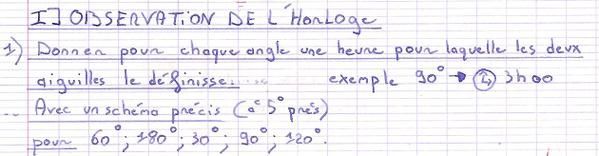 I] OBSERVATION DE L'HORLOGE
1) Donner pour chaque angle une heure pour laquelle les deux
aiguilles le définisse..... exemple 90° → 3h00
.. Avec un schéma précis (à 5° près)
pour 60°; 180°; 30°; 90°; 120°.